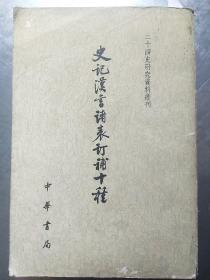 二十四史研究資料叢刊
史記漢書諸表訂補十種
中華書局